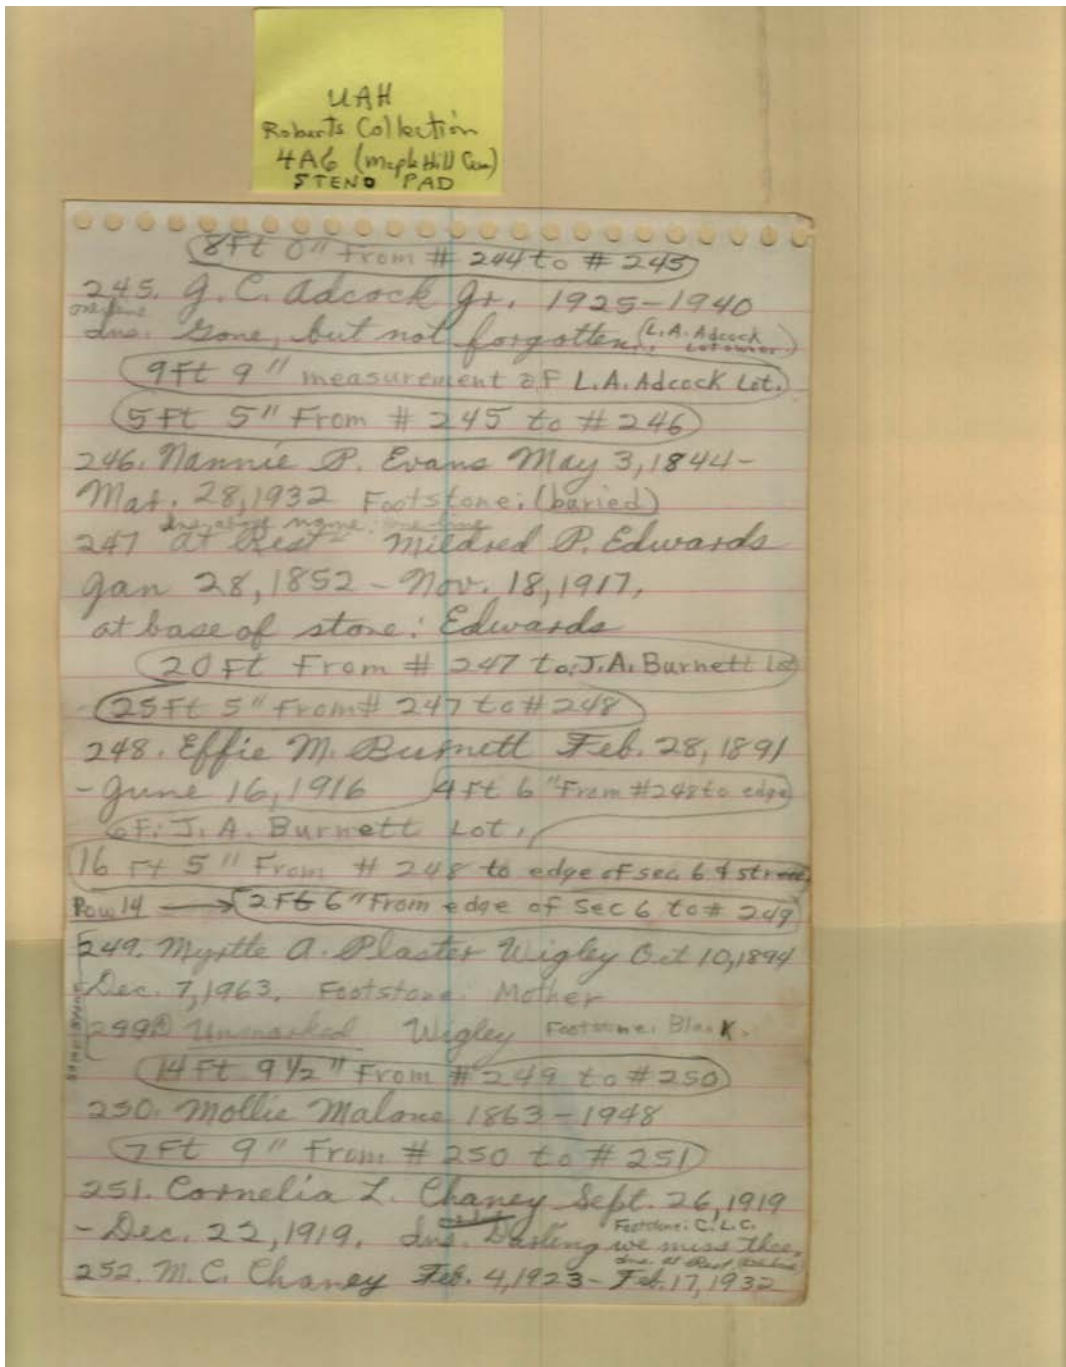 UAH
Roberts Collection
4A6 (Maple Hill Cem)
STENO PAD
8Ft 0" From # 244 to # 245
245. J. C. Adcock Jr. 1925-1940
one line
Ins. Gone, but not forgotten. (L.A. Adcock
Lot owner.)
9Ft 9" measurement of L.A. Adcock Lot.
5Ft 5" From # 245 to # 246
246. Nannie P. Evans May 3, 1844-
Mar. 28, 1932 Footstone: (buried)
line above name: one line
247 At Rest Mildred P. Edwards
Jan 28, 1852 - Nov. 18, 1917,
at base of stone: Edwards
20 Ft From # 247 to: J.A. Burnett Lot
25Ft 5" From # 247 to # 248
248. Effie M. Burnett Feb. 28, 1891
- June 16, 1916 4Ft 6" From #248 to edge
of: J. A. Burnett Lot.
16 Ft 5" From # 248 to edge of sec 6 & street
Row 14 → 2Ft 6" From edge of Sec 6 to # 249
249. Myrtle A. Plaster Wigley Oct 10, 1894
Dec. 7, 1963. Footstone. Mother
Unmarked Wigley Footstone: Blank.
14Ft 9 1/2" From # 249 to # 250
250. Mollie Malone 1863-1948
7Ft 9" From # 250 to # 251
251. Cornelia L. Chaney Sept. 26, 1919
Footstone: C.L.C.
- Dec. 22, 1919. Ins. Darling we miss thee.
Ins. At Rest
252. M. C. Chaney Feb. 4, 1923 - Feb. 17, 1932